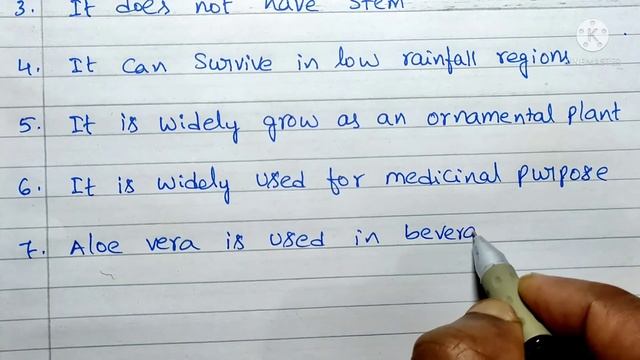 3. It does not have stem
4. It can survive in low rainfall regions
5. It is widely grow as an ornamental plant
6. It is widely used for medicinal purpose
7. Aloe vera is used in bevera